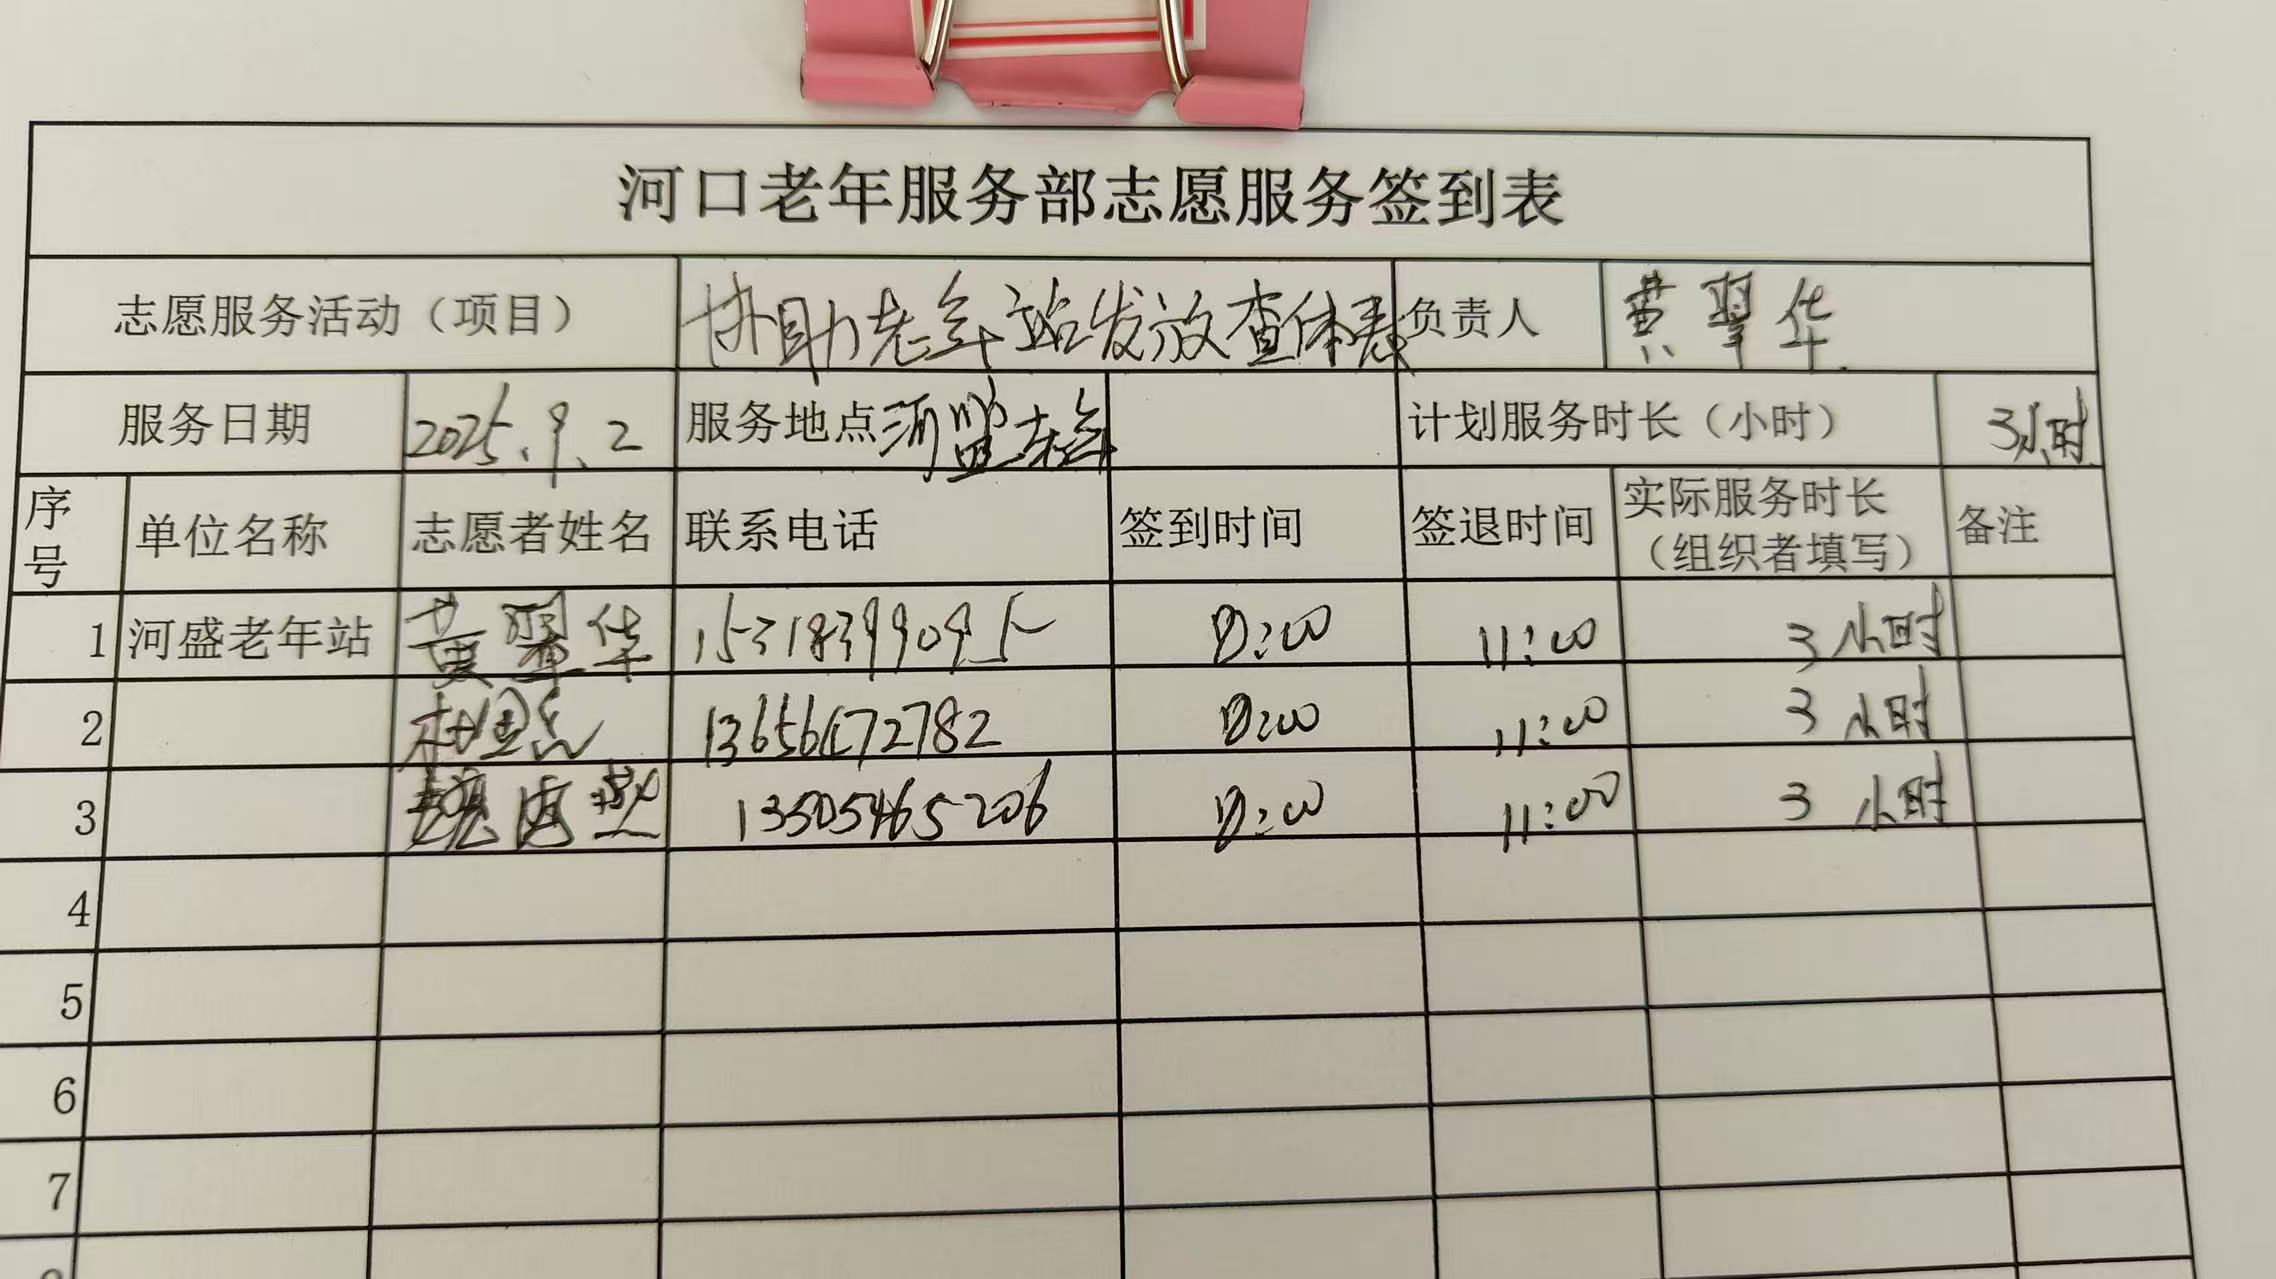 河口老年服务部志愿服务签到表
志愿服务活动（项目） 协助老年站发放查体表 负责人 黄翠华
服务日期 2025.9.2 服务地点 河盛老年 计划服务时长（小时） 3小时
序号 单位名称 志愿者姓名 联系电话 签到时间 签退时间 实际服务时长（组织者填写） 备注
1 河盛老年站 黄翠华 15318399095 8:00 11:00 3小时
2 13656472782 8:00 11:00 3小时
3 13505465206 8:00 11:00 3小时
4
5
6
7